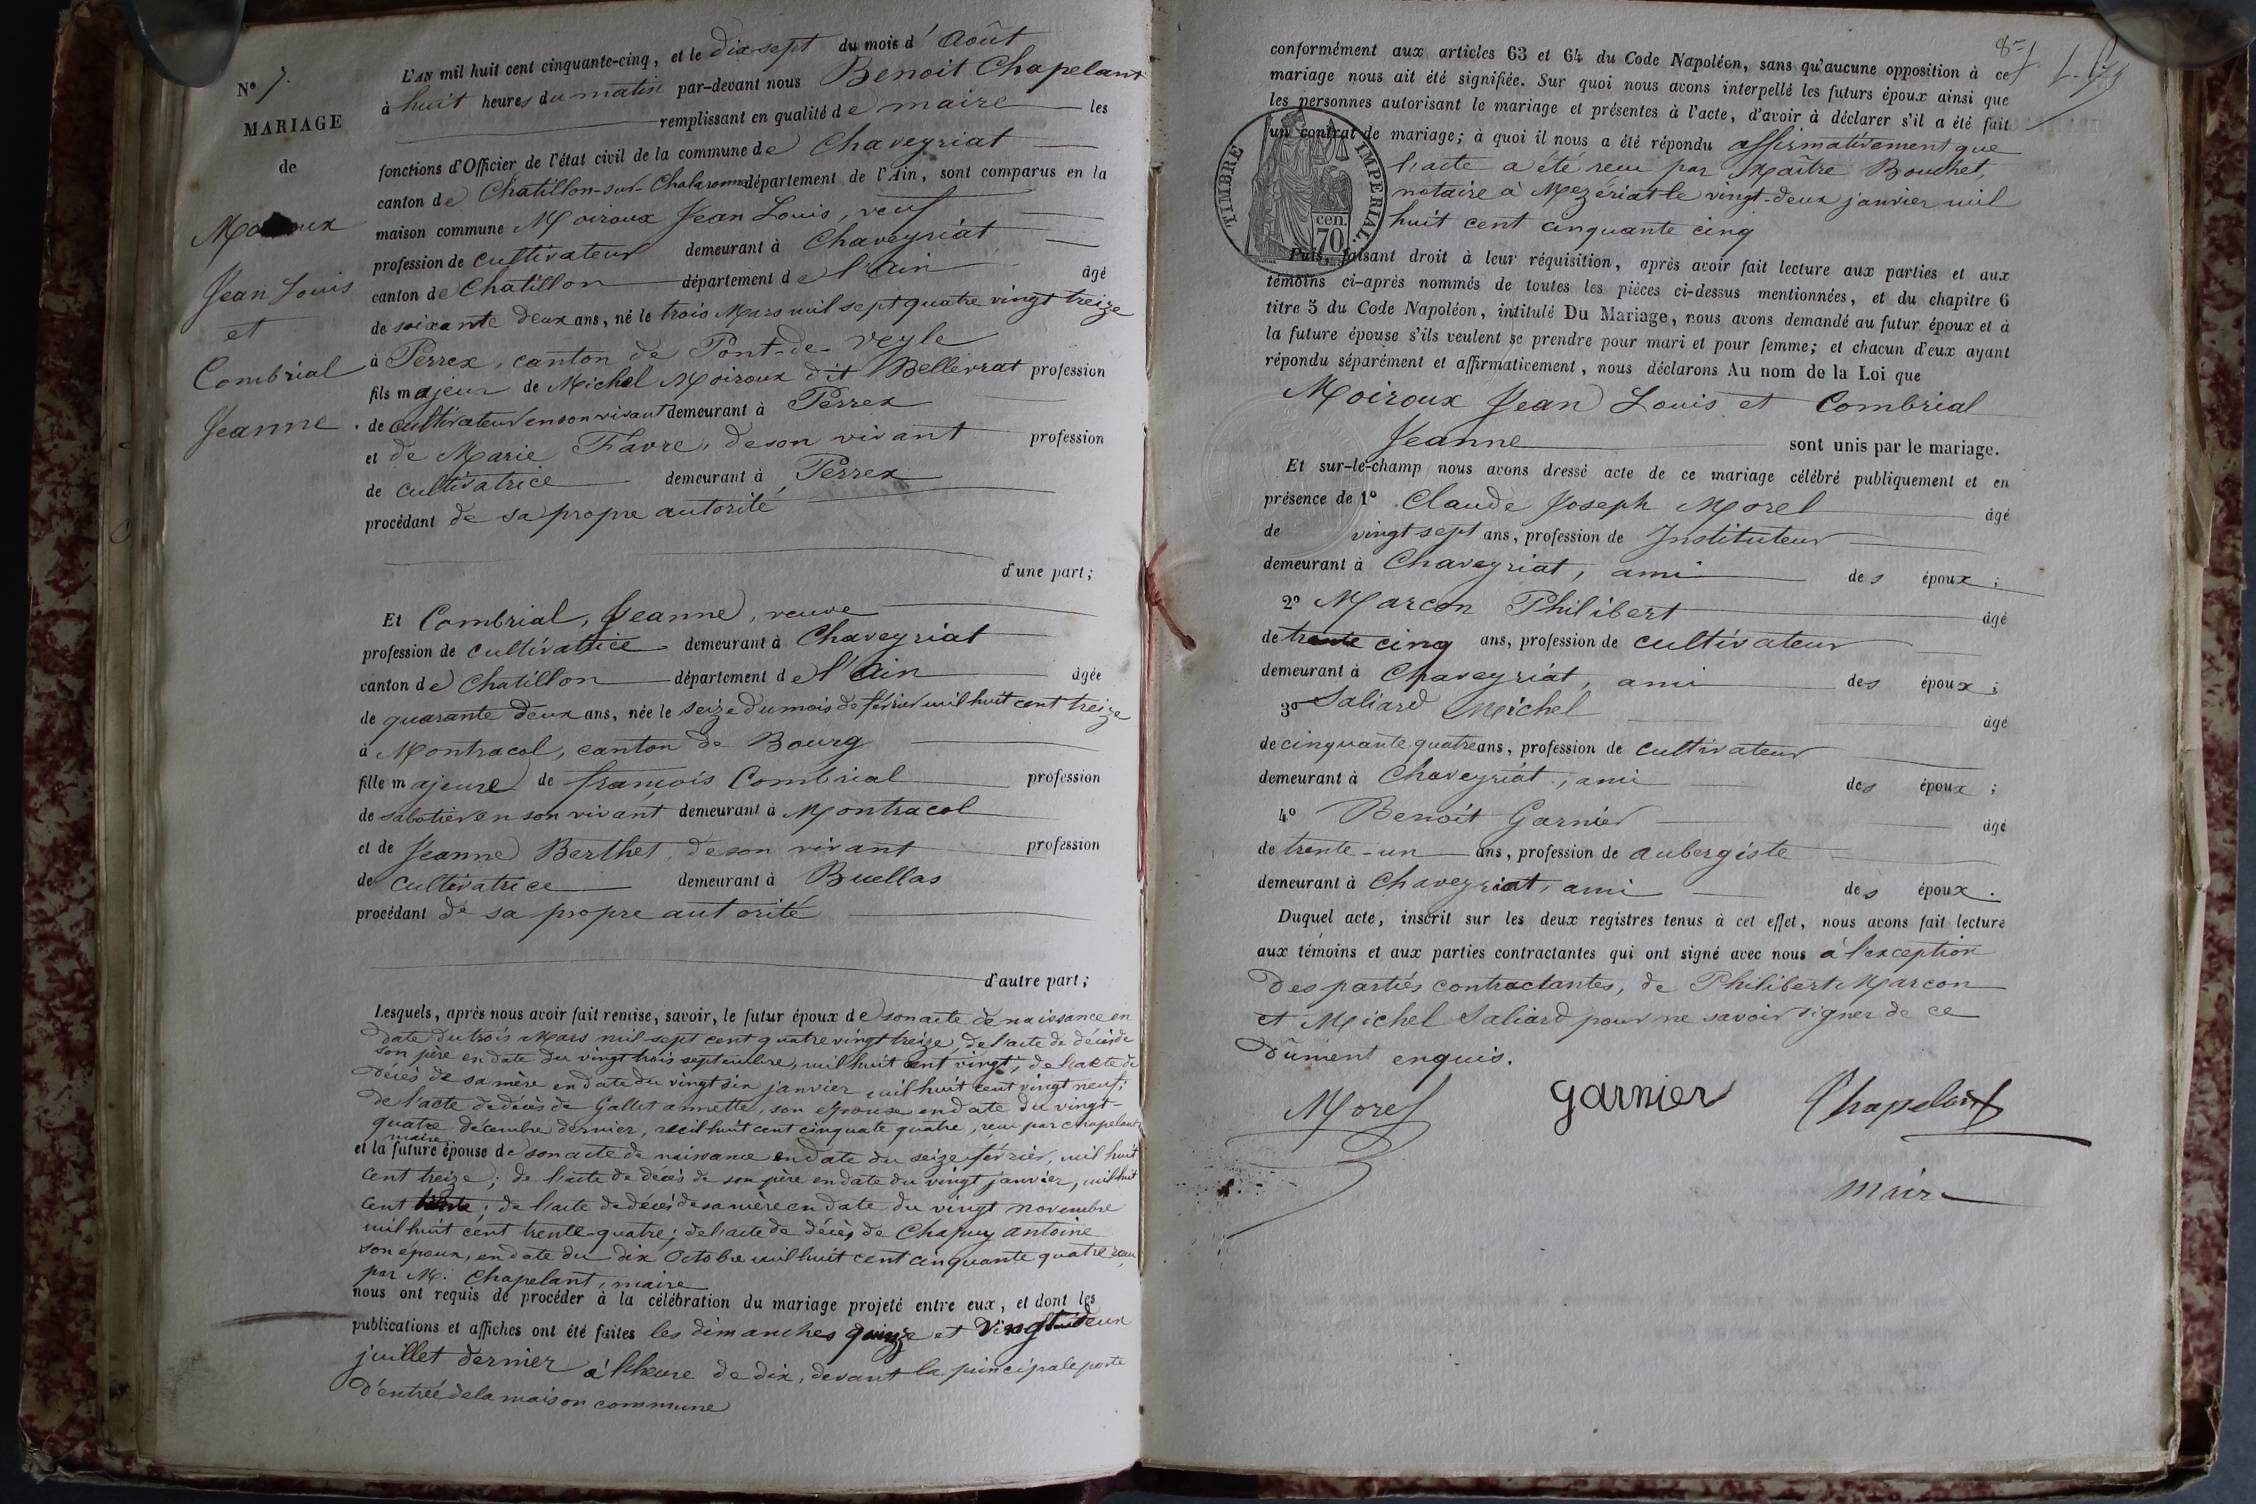 N° 7.
MARIAGE
de
Moiroux
Jean Louis
et
Combrial
Jeanne.
L'AN mil huit cent cinquante-cinq, et le dix sept du mois d'Août
à huit heures du matin par-devant nous Benoit Chapelant
remplissant en qualité de maire les
fonctions d'Officier de l'état civil de la commune de Chaveyriat
canton de Châtillon-sur-Chalaronne département de l'Ain, sont comparus en la
maison commune Moiroux Jean Louis, veuf
profession de cultivateur demeurant à Chaveyriat
canton de Chatillon département de l'Ain âgé
de soixante deux ans, né le trois Mars mil sept quatre vingt treize
à Perrex, canton de Pont-de-Veyle
fils majeur de Michel Moiroux dit Bellevrat profession
de cultivateur en son vivant demeurant à Perrex
et de Marie Favre, de son vivant profession
de cultivatrice demeurant à Perrex
procédant de sa propre autorité
d'une part;
Et Combrial, Jeanne, veuve
profession de cultivatrice demeurant à Chaveyriat
canton de Chatillon département de l'Ain âgée
de quarante deux ans, née le seize du mois de février mil huit cent treize
à Montracol, canton de Bourg
fille majeure de françois Combrial profession
de sabotier en son vivant demeurant à Montracol
et de Jeanne Berthet, de son vivant profession
de cultivatrice demeurant à Buellas
procédant de sa propre autorité
d'autre part;
Lesquels, après nous avoir fait remise, savoir, le futur époux de son acte de naissance en
date du trois Mars mil sept cent quatre vingt treize, de l'acte de décès de
son père en date du vingt trois septembre, mil huit cent vingt; de l'acte de
décès de sa mère en date du vingt six janvier mil huit cent vingt neuf;
de l'acte de décès de Gallet annette, son épouse en date du vingt-
quatre décembre dernier, mil huit cent cinquate quatre, reçu par chapelant
maire
et la future épouse de son acte de naissance en date du seize février, mil huit
cent treize; de l'acte de décès de son père en date du vingt janvier, mil huit
cent trente; de l'acte de décès de sa mère en date du vingt novembre
mil huit cent trente-quatre; de l'acte de décès de Chapuy antoine
son époux, en date du dix Octobre mil huit cent cinquante quatre reçu
par M. Chapelant, maire
nous ont requis de procéder à la célébration du mariage projeté entre eux, et dont les
publications et affiches ont été faites les dimanches quinze et vingt deux
juillet dernier à l'heure de dix, devant la principale porte
d'entrée de la maison commune
conformément aux articles 63 et 64 du Code Napoléon, sans qu'aucune opposition à ce
mariage nous ait été signifiée. Sur quoi nous avons interpellé les futurs époux ainsi que
les personnes autorisant le mariage et présentes à l'acte, d'avoir à déclarer s'il a été fait
un contrat de mariage; à quoi il nous a été répondu affirmativement que
l'acte a été reçu par Maître Bouchet,
notaire à Mezériat le vingt-deux janvier mil
huit cent cinquante cinq
TIMBRE IMPERIAL.
70 cen.
Puis, faisant droit à leur réquisition, après avoir fait lecture aux parties et aux
témoins ci-après nommés de toutes les pièces ci-dessus mentionnées, et du chapitre 6
titre 5 du Code Napoléon, intitulé Du Mariage, nous avons demandé au futur époux et à
la future épouse s'ils veulent se prendre pour mari et pour femme; et chacun d'eux ayant
répondu séparément et affirmativement, nous déclarons Au nom de la Loi que
Moiroux Jean Louis et Combrial
Jeanne sont unis par le mariage.
Et sur-le-champ nous avons dressé acte de ce mariage célébré publiquement et en
présence de 1° Claude Joseph Morel âgé
de vingt sept ans, profession de Instituteur
demeurant à Chaveyriat, ami des époux;
2° Marcon Philibert âgé
de trente cinq ans, profession de cultivateur
demeurant à Chaveyriat, ami des époux;
3° Saliard Michel âgé
de cinquante quatre ans, profession de cultivateur
demeurant à Chaveyriat, ami des époux;
4° Benoit Garnier âgé
de trente-un ans, profession de aubergiste
demeurant à Chaveyriat, ami des époux.
Duquel acte, inscrit sur les deux registres tenus à cet effet, nous avons fait lecture
aux témoins et aux parties contractantes qui ont signé avec nous à l'exception
Des parties contractantes, de Philibert Marcon
et Michel Saliard pour ne savoir signer de ce
Dûment enquis.
Morel garnier Chapelant
maire